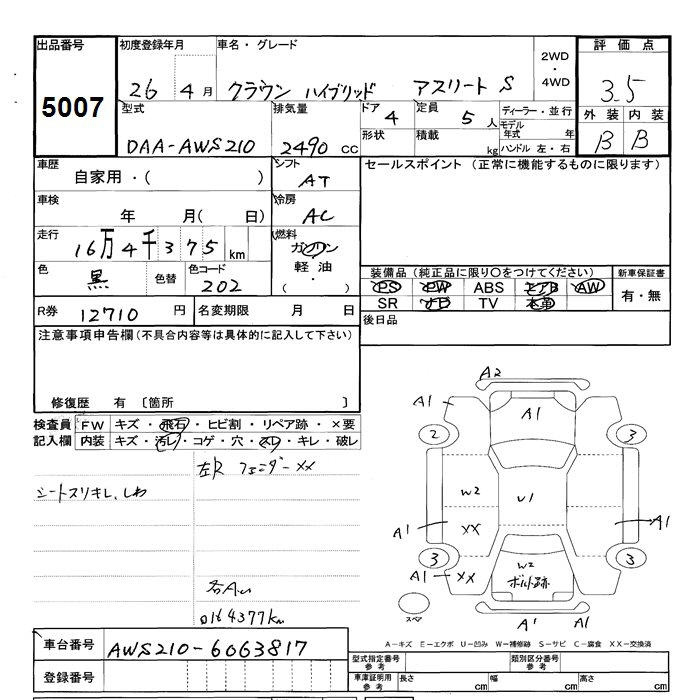 出品番号 初度登録年月 車名・グレード 評価点
5007
26 4月 クラウン ハイブリッド アスリート S 2WD・4WD 3.5
型式 排気量 ドア 4 定員 5人 ディーラー・並行 外装 内装
DAA-AWS210 2490cc 形状 積載 kg モデル年式 年 B B
ハンドル 左・右
車歴 シフト セールスポイント (正常に機能するものに限ります)
自家用・( ) AT
車検 冷房
年 月( 日) AC
走行 燃料
16万4千375km ガソリン
軽油
・
( )
色 黒 色替 色コード 202
装備品 (純正品に限り〇をつけてください) 新車保証書
PS PW ABS エアB AW 有・無
SR ナビ TV 本革
R券 12710円 名変期限 月 日 後日品
注意事項申告欄(不具合内容等は具体的に記入して下さい)
修復歴 有 〔箇所 〕
検査員 FW キズ・飛石・ヒビ割・リペア跡・×要
記入欄 内装 キズ・汚レ・コゲ・穴・スレ・キレ・破レ
左R フェンダーXX
シートスリキレ、しわ
①164377km
A2
A1 A1
2 3
W2 U1
A1 XX A1
3 3
A1 XX W2
ボルト跡
スペア
A1 A1
A-キズ E-エクボ U-凹み W-補修跡 S-サビ C-腐食 XX-交換済
車台番号 AWS210-6063817
登録番号
型式指定番号 参考 類別区分番号 参考
車庫証明用 参考 長さ cm 幅 cm 高さ cm